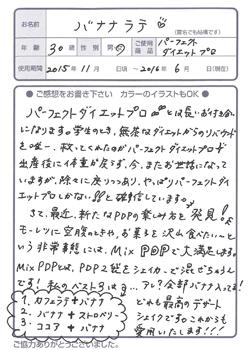 お名前 バナナラテ
(匿名でも結構です)
年齢 30歳 性別 男・女 ご使用商品 パーフェクトダイエットプロ
使用期間 2015年 11月 日頃 ~ 2016年 6月 日(現在)
●ご感想をお書き下さい カラーのイラストもOK●
パーフェクトダイエットプロとは長いお付き合い
になります。学生のとき、無茶なダイエットからのリバウンド
を唯一、救ってくれたのがパーフェクトダイエットプロ
出産後に体重が戻らず、今、またお世話になって
いますが、徐々に戻りつつあり、やっぱりパーフェクトダイ
エットプロしかない!!と確信しています。
さて、最近、新たなPDPの楽しみ方を発見!
モーレツに空腹のときや、お菓子を沢山食べたい…と
いう非常事態には、Mix PDPで大満足します。
Mix PDPとは、PDP2袋をシェイカーで混ぜちゃうん
です!私のベスト3は… アレ?全部バナナ入ってる
1. カフェラテ+バナナ
2. バナナ+ストロベリー
3. ココア+バナナ
どれも最高のデザート
シェイクです。これからも
愛用いたします!!!
ご協力ありがとうございました。